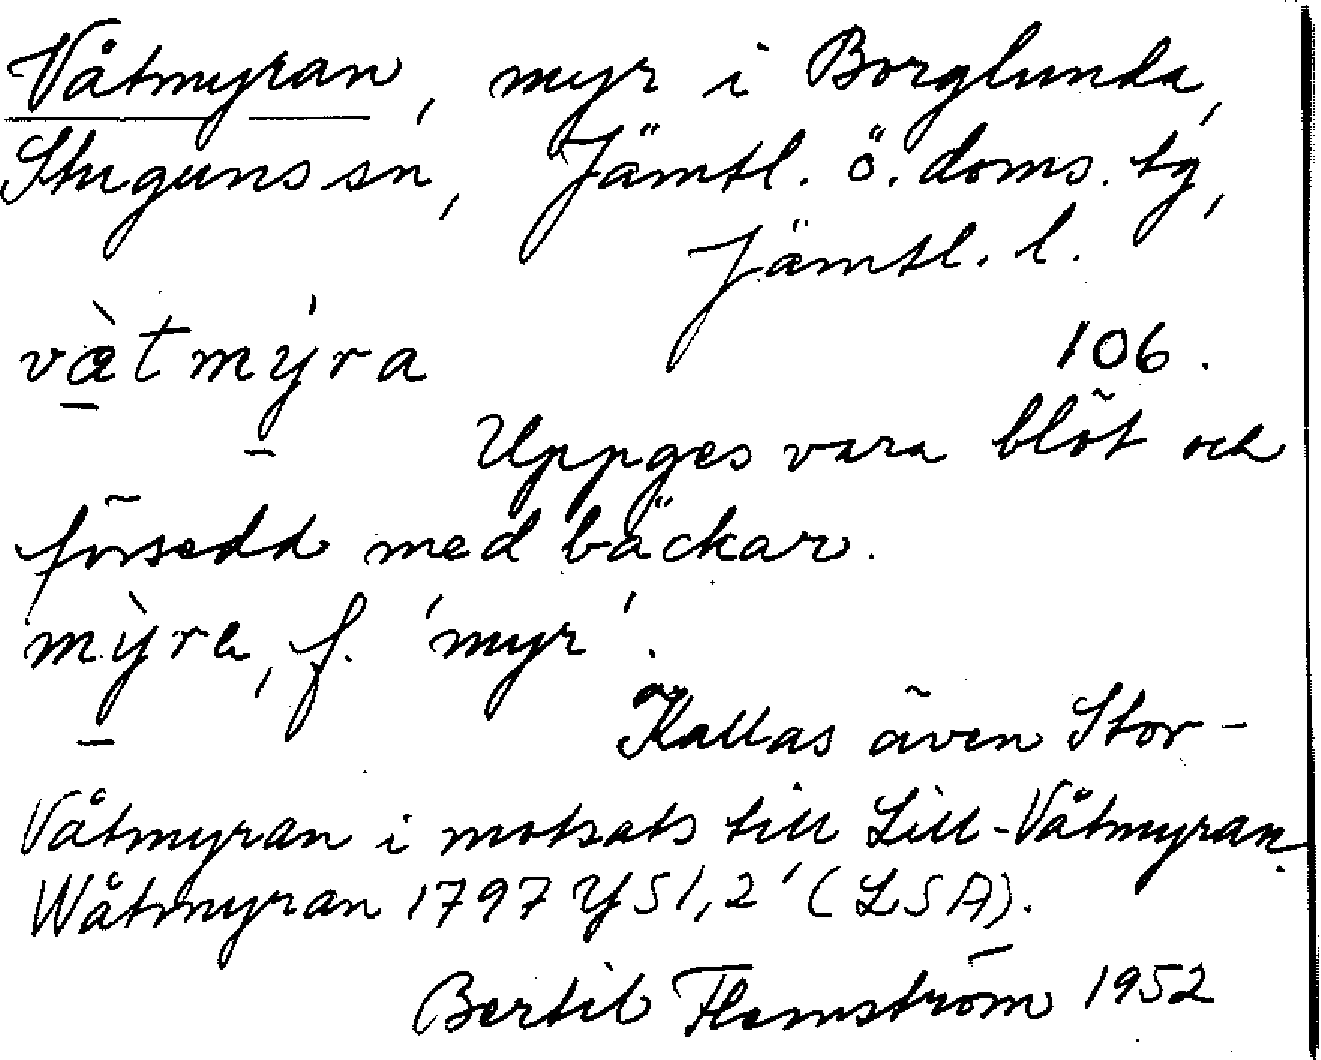 Våtmyran, myr i Borglunda,
Stuguns sn, Jämtl. ö. doms. tg,
Jämtl. l.
væ̀tmýra 106.
Uppges vara blöt och
försedd med bäckar.
mỳra, f. 'myr'.
Kallas även Stor-
Våtmyran i motsats till Lill-Våtmyran.
Wåtmyran 1797 Y51,2' (LSA).
Bertil Flemström 1952